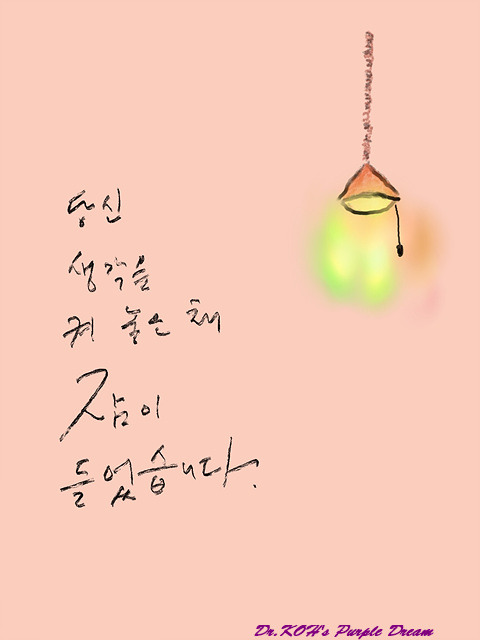 당신
생각을
켜 놓은 채
잠이
들었습니다.
Dr.KOH's Purple Dream